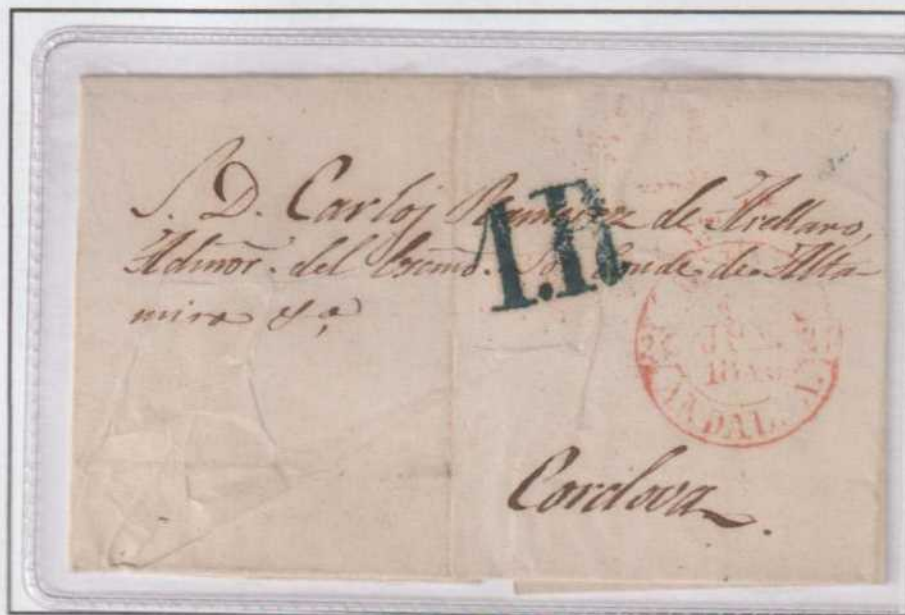 S. D. Carlos Ramirez de Arellano,
Admor. del Excmo. Sr. Conde de Alta-
mira &a
1.R
JUN.
ANDAL.
Cordova.